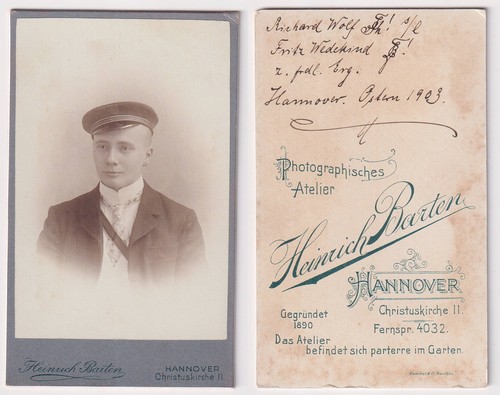 Heinrich Barten
HANNOVER
Christuskirche 11.
Richard Wolf Th! s/l
Fritz Wedekind
z. frdl. Erg.
Hannover. Ostern 1903.
Photographisches
Atelier
Heinrich Barten
HANNOVER
Christuskirche 11.
Gegründet
1890
Fernspr. 4032.
Das Atelier
befindet sich parterre im Garten.